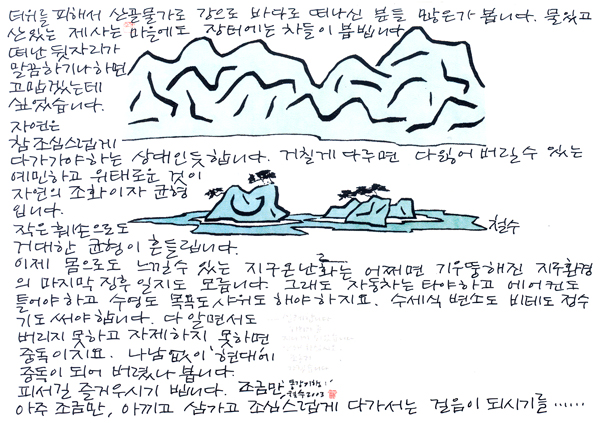 더위를 피해서 산골물가로 강으로 바다로 떠나신 분들 많은가 봅니다. 물있고
산있는 제 사는 마을에도 장터에는 차들이 붐빕니다.
떠난 뒷자리가
말끔하기나하면
고맙겠는데
싶었습니다.
자연은
참 조심스럽게
다가가야하는 상대인듯 합니다. 거칠게 다루면 다 잃어 버릴 수 있는
예민하고 위태로운 것이
자연의 조화이자 균형
입니다.
철수
작은 훼손으로도
거대한 균형이 흔들립니다.
이제 몸으로도 느낄 수 있는 지구온난화는 어쩌면 기우뚱해진 지구환경
의 마지막 징후일지도 모릅니다. 그래도 자동차는 타야하고 에어컨도
틀어야하고 수영도 목욕도 샤워도 해야 하지요. 수세식 변소도 비데도 접수
기도 써야 합니다. 다 알면서도
버리지 못하고 자제하지 못하면
중독이지요. 나남 없이 현대에
중독이 되어 버렸나 봅니다.
피서길 즐거우시기 빕니다. 조금만,
철수2003
아주 조금만, 아끼고 삼가고 조심스럽게 다가서는 걸음이 되시기를……